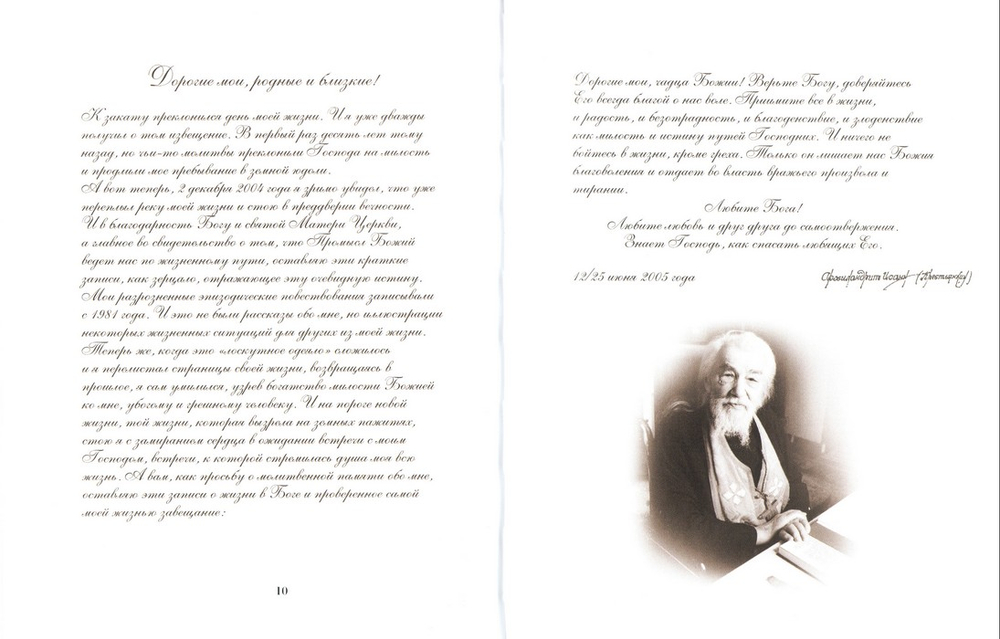 Дорогие мои, родные и близкие!
К закату преклонился день моей жизни. И я уже дважды
получил о том извещение. В первый раз десять лет тому
назад, но чьи-то молитвы преклонили Господа на милость
и продлили мое пребывание в земной юдоли.
А вот теперь, 2 декабря 2004 года я зримо увидел, что уже
переплыл реку моей жизни и стою в преддверии вечности.
И в благодарность Богу и святой Матери Церкви,
а главное во свидетельство о том, что Промысл Божий
ведет нас по жизненному пути, оставляю эти краткие
записи, как зерцало, отражающее эту очевидную истину.
Мои разрозненные эпизодические повествования записывали
с 1981 года. И это не были рассказы обо мне, но иллюстрации
некоторых жизненных ситуаций для других из моей жизни.
Теперь же, когда это «лоскутное одеяло» сложилось
и я перелистал страницы своей жизни, возвращаясь в
прошлое, я сам умилился, узрев богатство милости Божией
ко мне, убогому и грешному человеку. И на пороге новой
жизни, той жизни, которая вызрела на земных пажитях,
стою я с замиранием сердца в ожидании встречи с моим
Господом, встречи, к которой стремилась душа моя всю
жизнь. А вам, как просьбу о молитвенной памяти обо мне,
оставляю эти записи о жизни в Боге и проверенное самой
моей жизнью завещание:
10
Дорогие мои, чадца Божии! Верьте Богу, доверяйтесь
Его всегда благой о нас воле. Приимите все в жизни,
и радость, и безотрадность, и благоденствие, и злоденствие
как милость и истину путей Господних. И ничего не
бойтесь в жизни, кроме греха. Только он лишает нас Божия
благоволения и отдает во власть вражьего произвола и
тирании.
Любите Бога!
Любите любовь и друг друга до самоотвержения.
Знает Господь, как спасать любящих Его.
12/25 июня 2005 года
Архимандрит Иоанн (Крестьянкин)